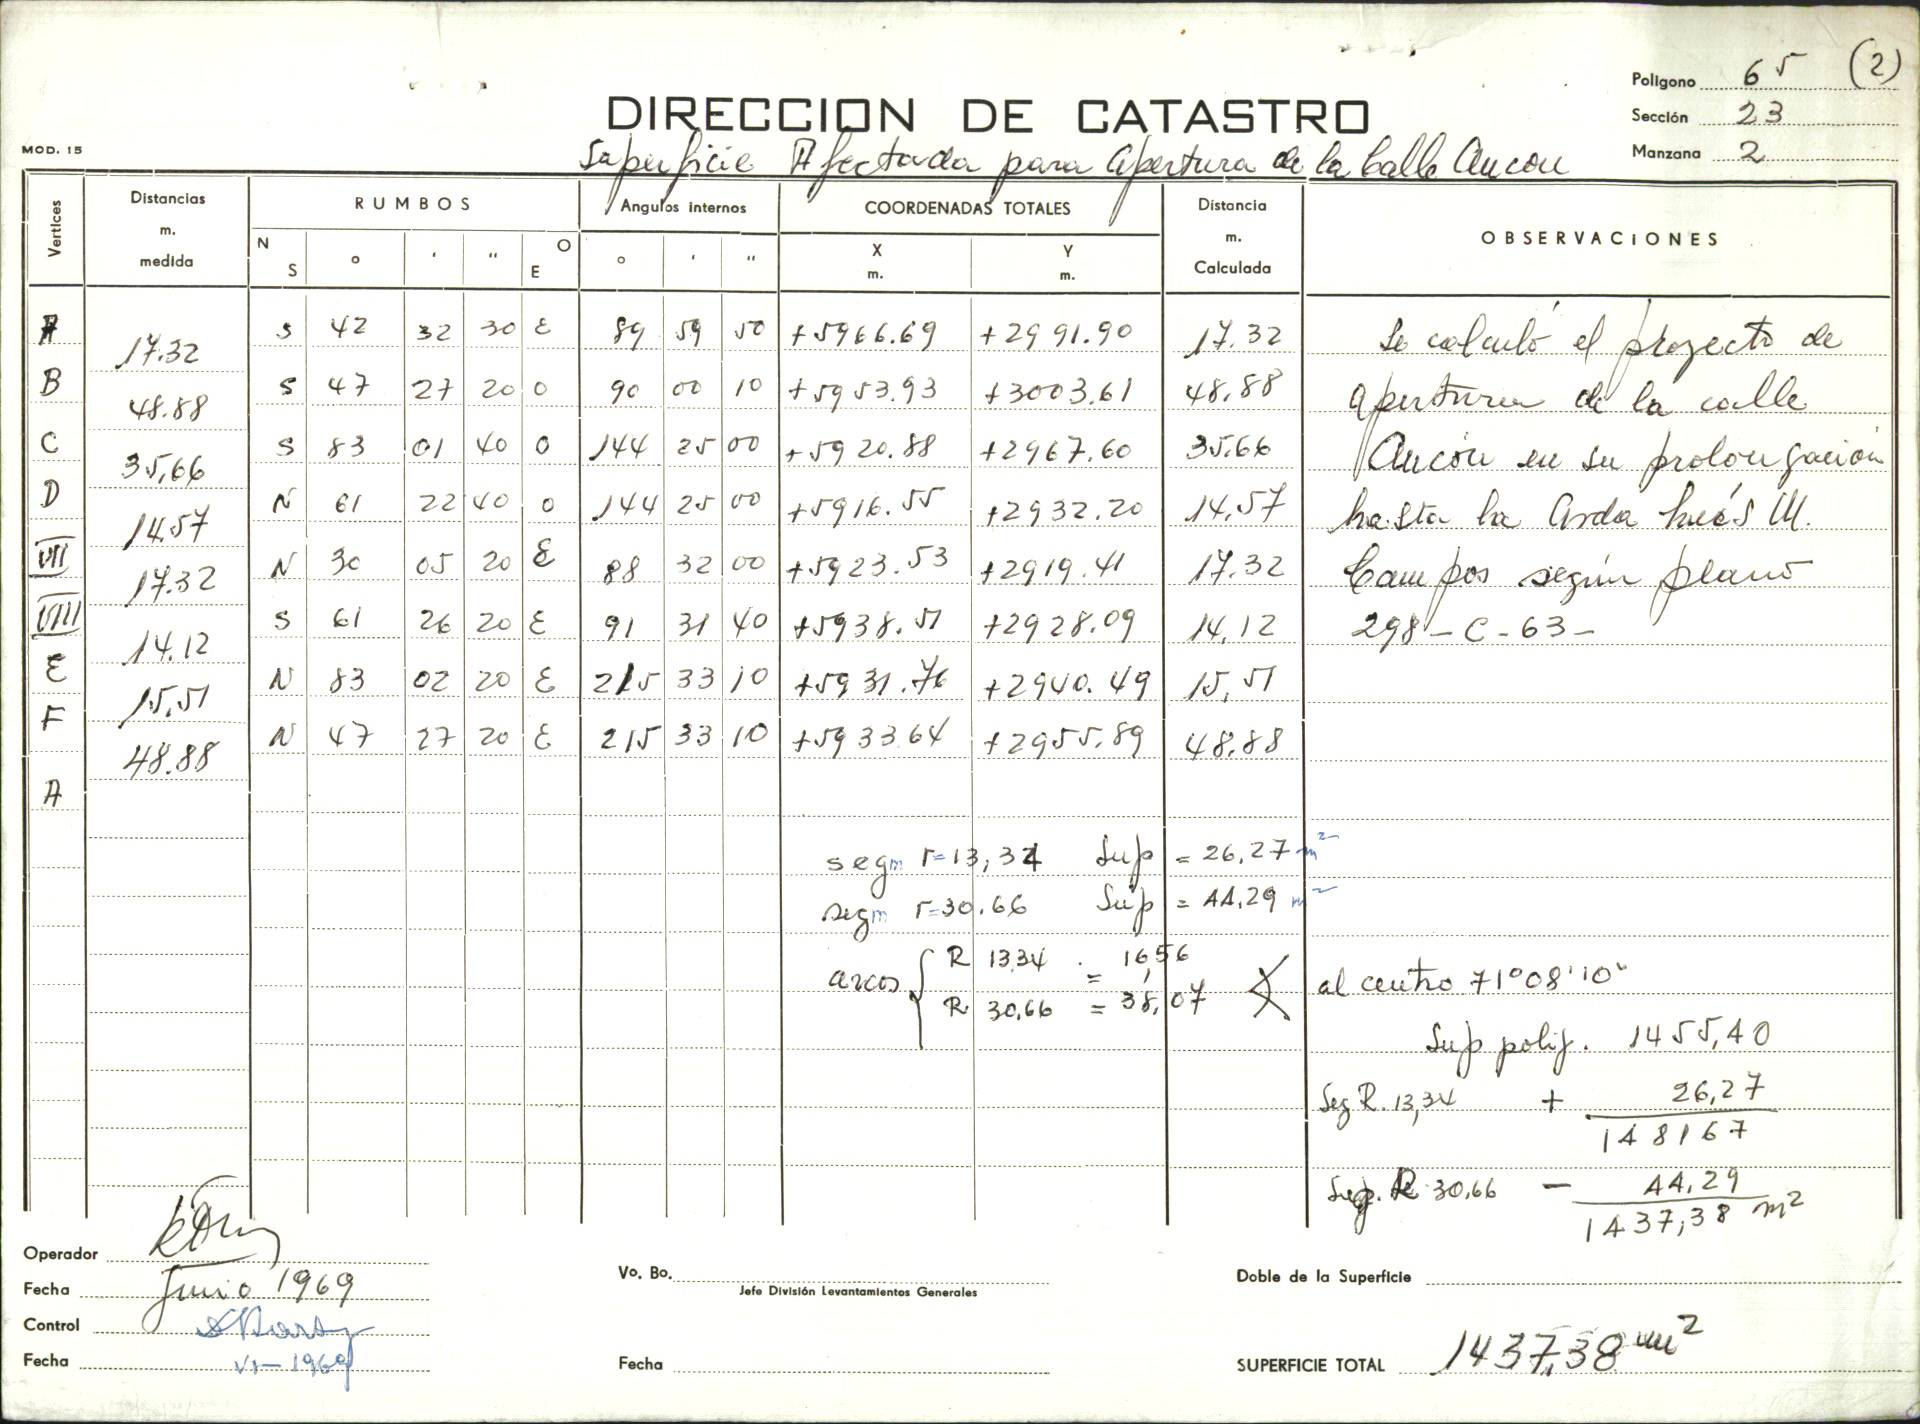 Polígono 65 (2)
DIRECCION DE CATASTRO
Sección 23
MOD. 15
Superficie Afectada para apertura de la Calle Ancón
Manzana 2
Vertices Distancias m. medida RUMBOS Angulos internos COORDENADAS TOTALES Distancia m. Calculada OBSERVACIONES
N S ° ' " O E ° ' " X m. Y m.
A S 42 32 30 E 89 59 50 +5966.69 +2991.90 17.32 Se calculó el proyecto de
17.32
B S 47 27 20 O 90 00 10 +5953.93 +3003.61 48.88 apertura de la calle
48.88
C S 83 01 40 O 144 25 00 +5920.88 +2967.60 35.66 Ancón en su prolongación
35,66
D N 61 22 40 O 144 25 00 +5916.55 +2932.20 14,57 hasta la Avda Luis M.
14.57
VII N 30 05 20 E 88 32 00 +5923.53 +2919.41 17.32 Campos según plano
17.32
VIII S 61 26 20 E 91 31 40 +5938.51 +2928.09 14,12 298-C-63-
14.12
E N 83 02 20 E 215 33 10 +5931.76 +2940.49 15,51
15,51
F N 47 27 20 E 215 33 10 +5933.64 +2955.89 48.88
48.88
A
segm r=13,34 Sup = 26,27 m²
segm r=30.66 Sup = 44,29 m²
arcos R 13.34 = 16,56
R 30,66 = 38,07 al centro 71°08'10"
Sup polig. 1455,40
Seg R. 13,34 + 26,27
148167
R 30,66 - 44,29
1437,38 m²
Operador
Fecha Junio 1969
Vo. Bo.
Jefe División Levantamientos Generales
Doble de la Superficie
Control
Fecha VI-1969
Fecha
SUPERFICIE TOTAL 1437,38 m²